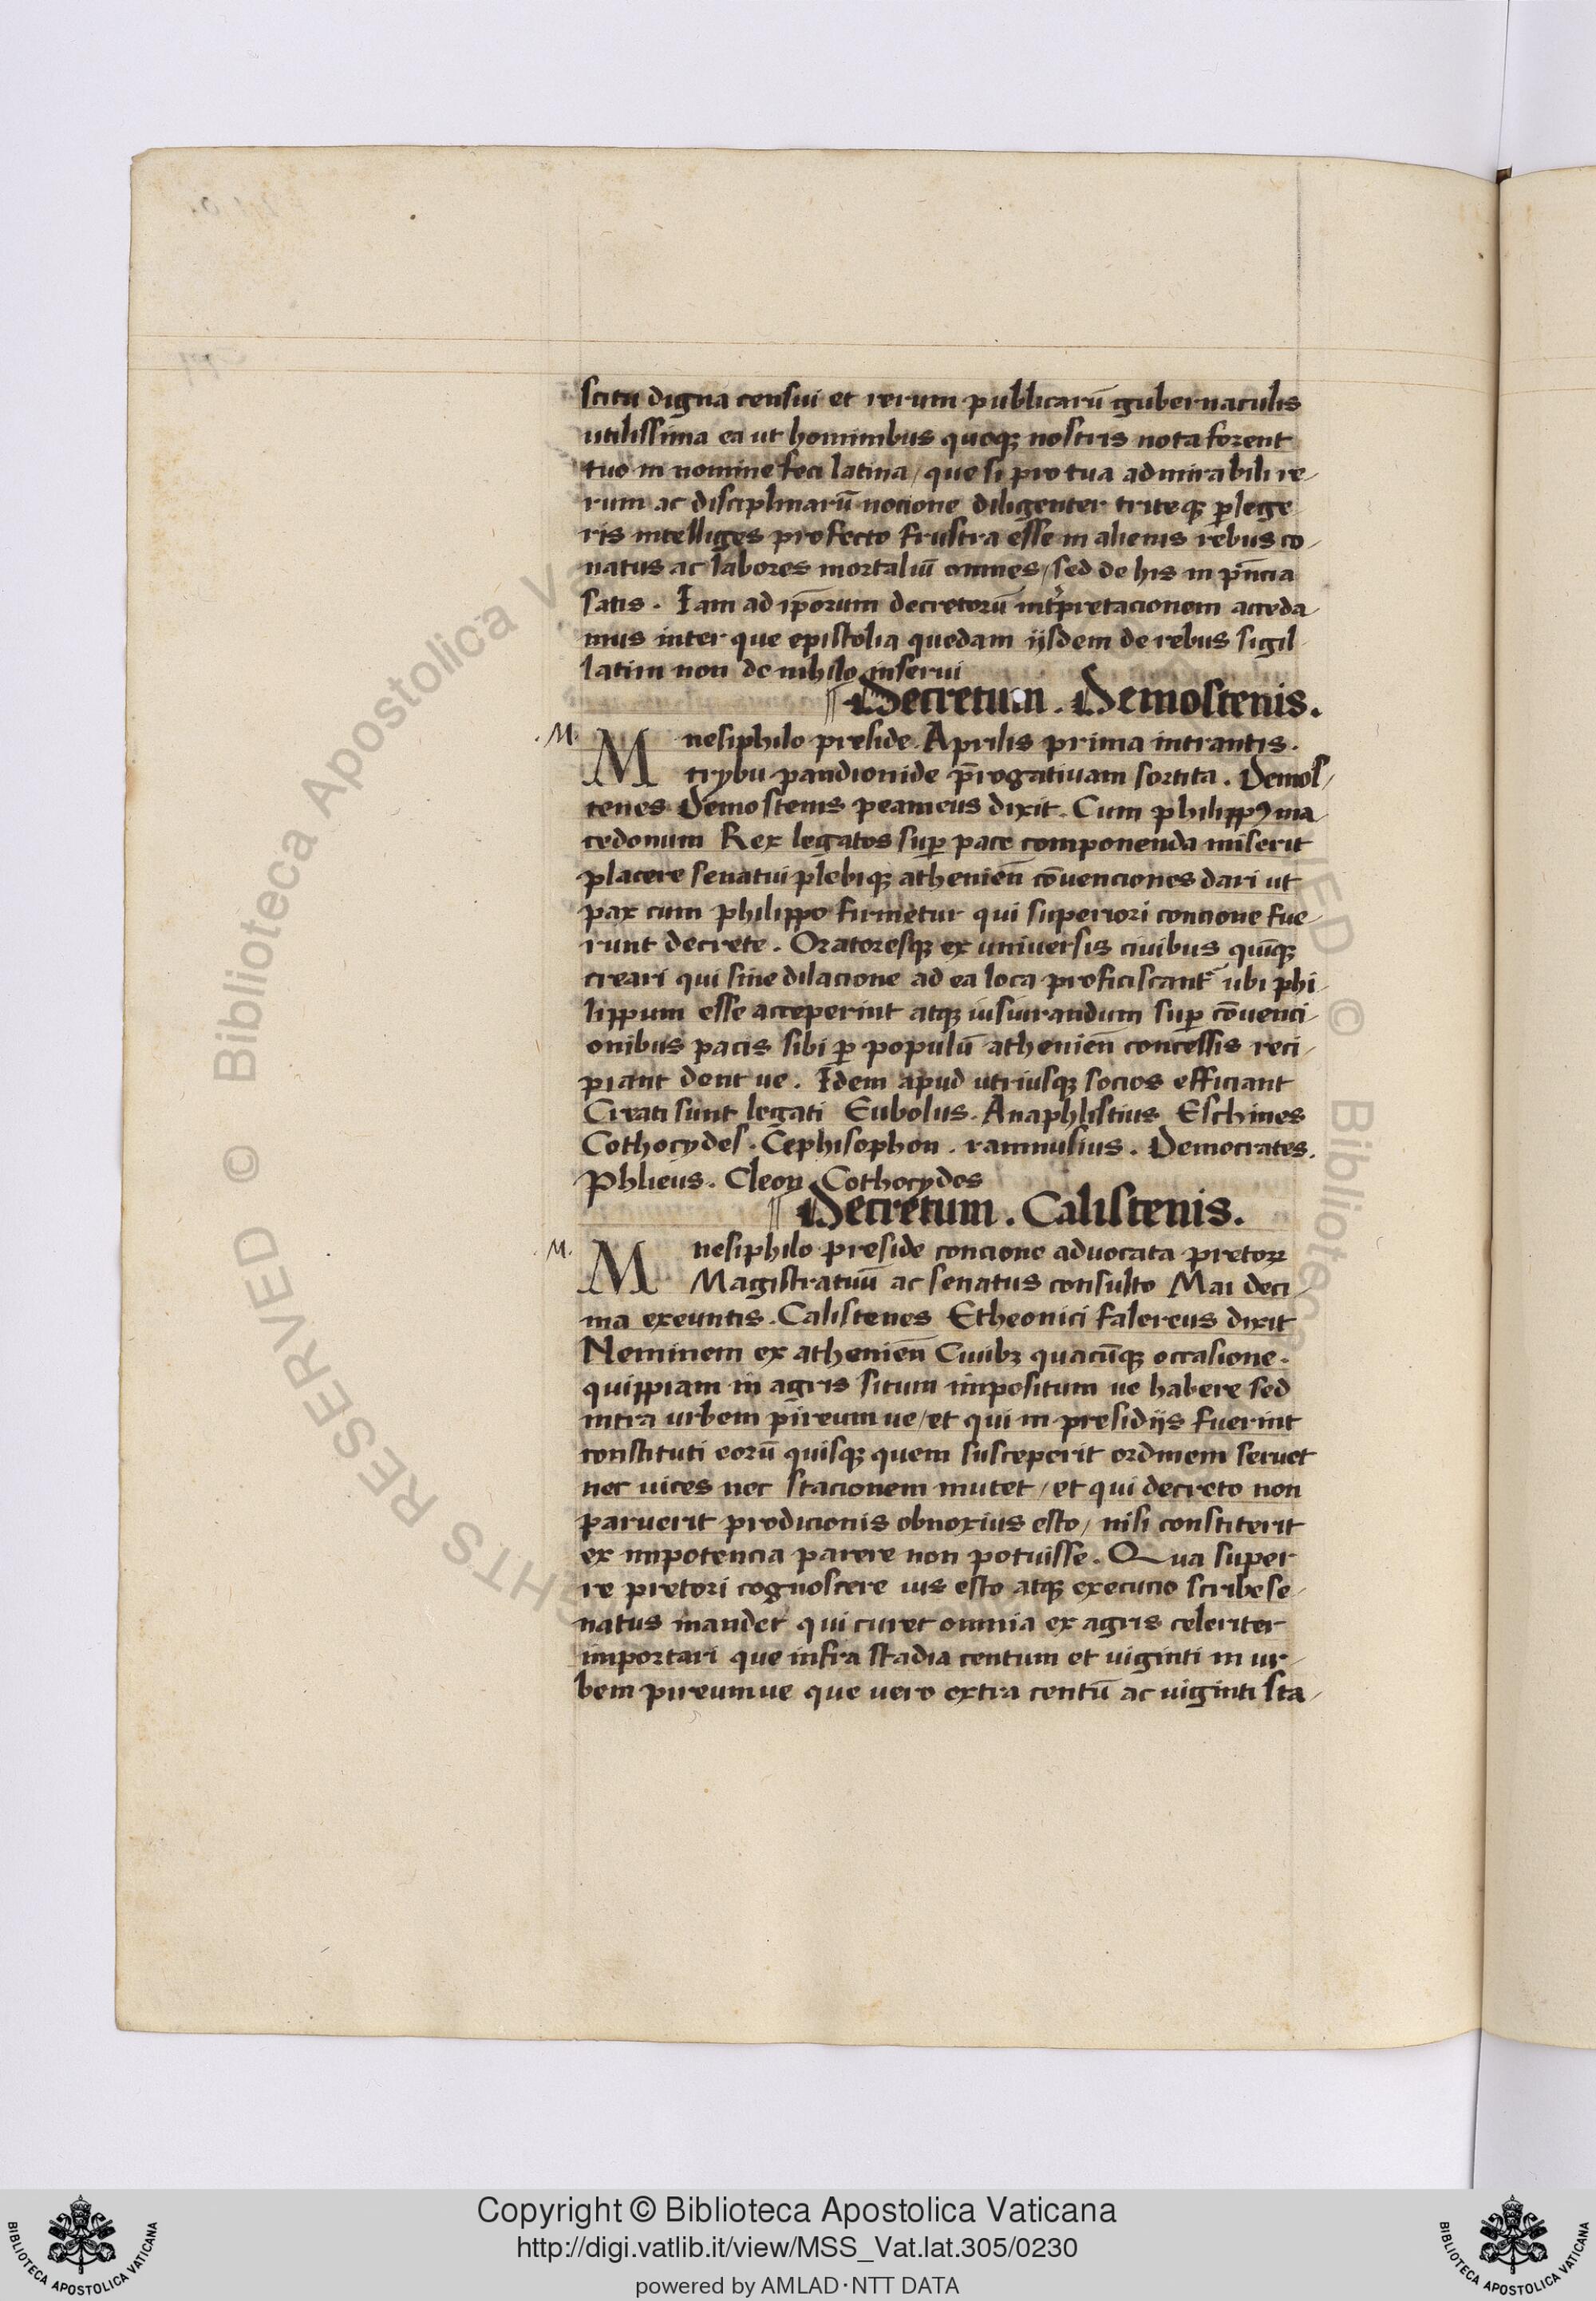 scitu digna censui et rerum publicarū gubernaculis
utilissima ea ut hominibus quoqꝫ nostris nota forent
tuo in nomine feci latina / que si pro tua admirabili re-
rum ac disciplinarū nocione diligenter triteqꝫ ꝑlege
ris intelliges profecto frustra esse in alienis rebus co-
natus ac labores mortaliū omnes / sed de his in p̄ncia
satis . Iam ad ip̄orum decretorū int̓pretacionem acceda-
mus inter que epistolia quedam ijsdem de rebus sigil-
latim non de nihilo inserui
Decretum . Demostenis.
.M.
Mnesiphilo preside . Aprilis prima intrantis.
trybu pandionide p̄rogativam sortita . Demos-
tenes Demostenis peameus dixit . Cum philippꝰ ma-
cedonum Rex legatos suꝑ pace componenda miserit
placere senatui plebiqꝫ athenien̄ cōvenciones dari ut
pax cum philippo firmetur qui superiori concione fue-
runt decrete . Oratoresqꝫ ex universis civibus quīqꝫ
creari qui sine dilacione ad ea loca proficiscant᷑ ubi phi-
lippum esse acceperint atqꝫ iusiurandum suꝑ cōvenci-
onibus pacis sibi ꝑ populū athenien̄ concessis reci-
piant dent ue . Idem apud utriusqꝫ socios efficiant
Creati sunt legati Eubolus . Anaphlistius Eschines
Cothocydes . Cephisophon . ramnusius . Democrates.
Phlieus . Cleon Cothocydes
Decretum . Calistenis.
.M.
Mnesiphilo preside concione advocata pretoꝝ
Magistratuū ac senatus consulto Mai deci-
ma exeuntis . Calistenes Etheonici falereus dixit
Neminem ex athenien̄ Civibꝫ quacūqꝫ occasione .
quippiam in agris situm impositum ue habere sed
intra urbem pireum ue / et qui in presidijs fuerint
constituti eorū quisqꝫ quem susceperit ordinem servet
nec vices nec stacionem mutet / et qui decreto non
paruerit prodicionis obnoxius esto / nisi constiterit
ex impotencia parere non potuisse . Qua super
re pretori cognoscere ius esto atqꝫ execucio scribe se-
natus mandet qui curet omnia ex agris celeriter
importari que infra stadia centum et viginti in ur-
bem pireumue que vero extra centū ac viginti sta-
© Biblioteca Apostolica Vaticana
Copyright © Biblioteca Apostolica Vaticana
http://digi.vatlib.it/view/MSS_Vat.lat.305/0230
powered by AMLAD·NTT DATA
BIBLIOTECA APOSTOLICA VATICANA
BIBLIOTECA APOSTOLICA VATICANA